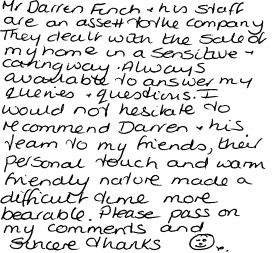 Mr Darren Finch + his staff
are an asset to the company
They dealt with the sale of
my home in a sensitive +
caring way. Always
available to answer my
queries + questions. I
would not hesitate to
recommend Darren + his
team to my friends, their
personal touch and warm
friendly nature made a
difficult time more
bearable. Please pass on
my comments and
sincere thanks